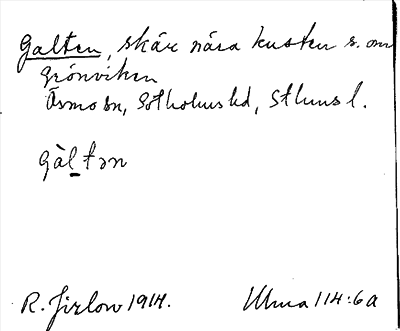 Galten, skär nära kusten s. om
Grönviken
Ösmo sn, Sotholms hd, Sthlms l.
gàltən
R. Jirlow 1914.
Ulma 114:6a